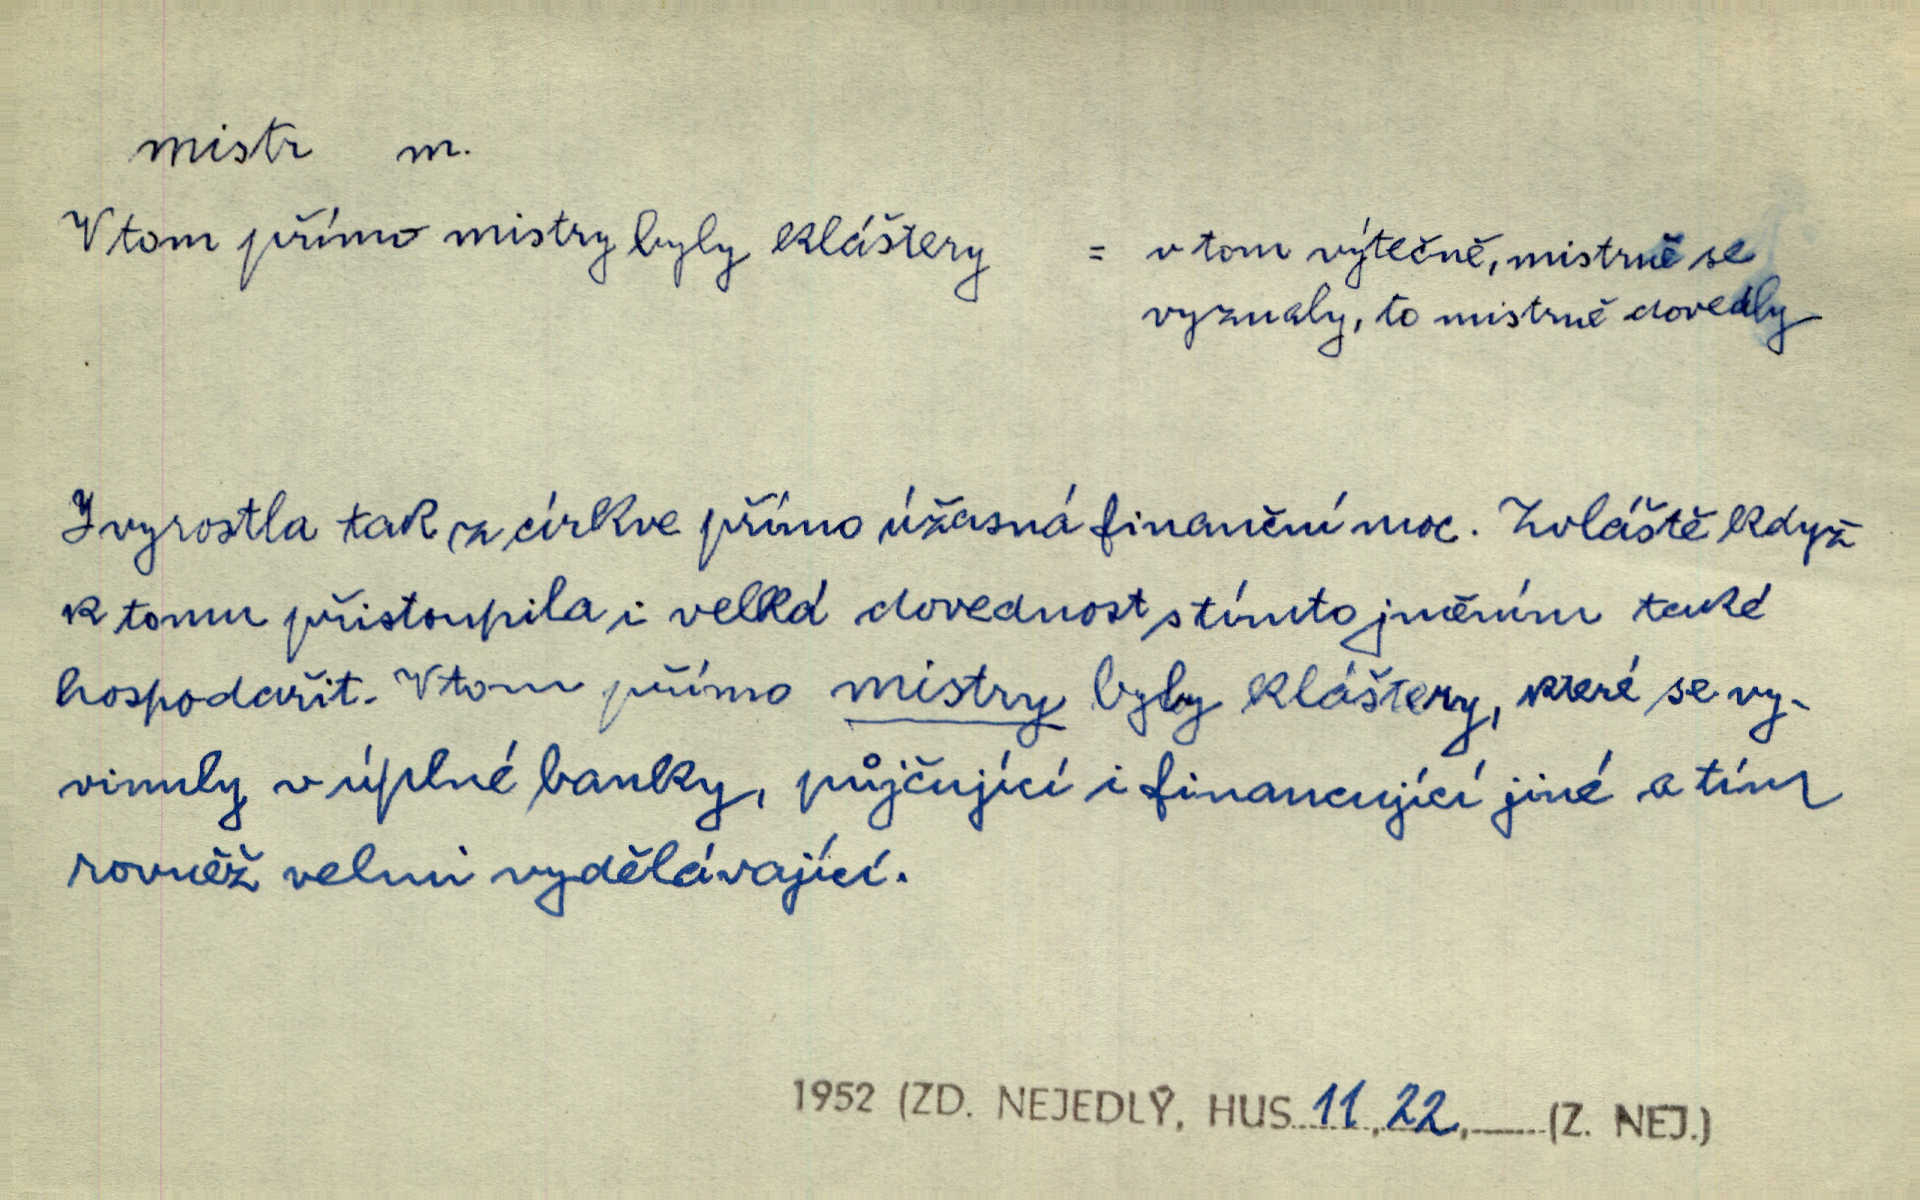 mistr m.
V tom přímo mistry byly kláštery = v tom výtečně, mistrně se
vyznaly, to mistrně dovedly
I vyrostla tak z církve přímo úžasná finanční moc. Zvláště když
k tomu přistoupila i velká dovednost s tímto jměním také
hospodařit. V tom přímo mistry byly kláštery, které se vy-
vinuly v úplné banky, půjčující i financující jiné a tím
rovněž velmi vydělávající.
1952 (ZD. NEJEDLÝ, HUS 11, 22, (Z. NEJ.)